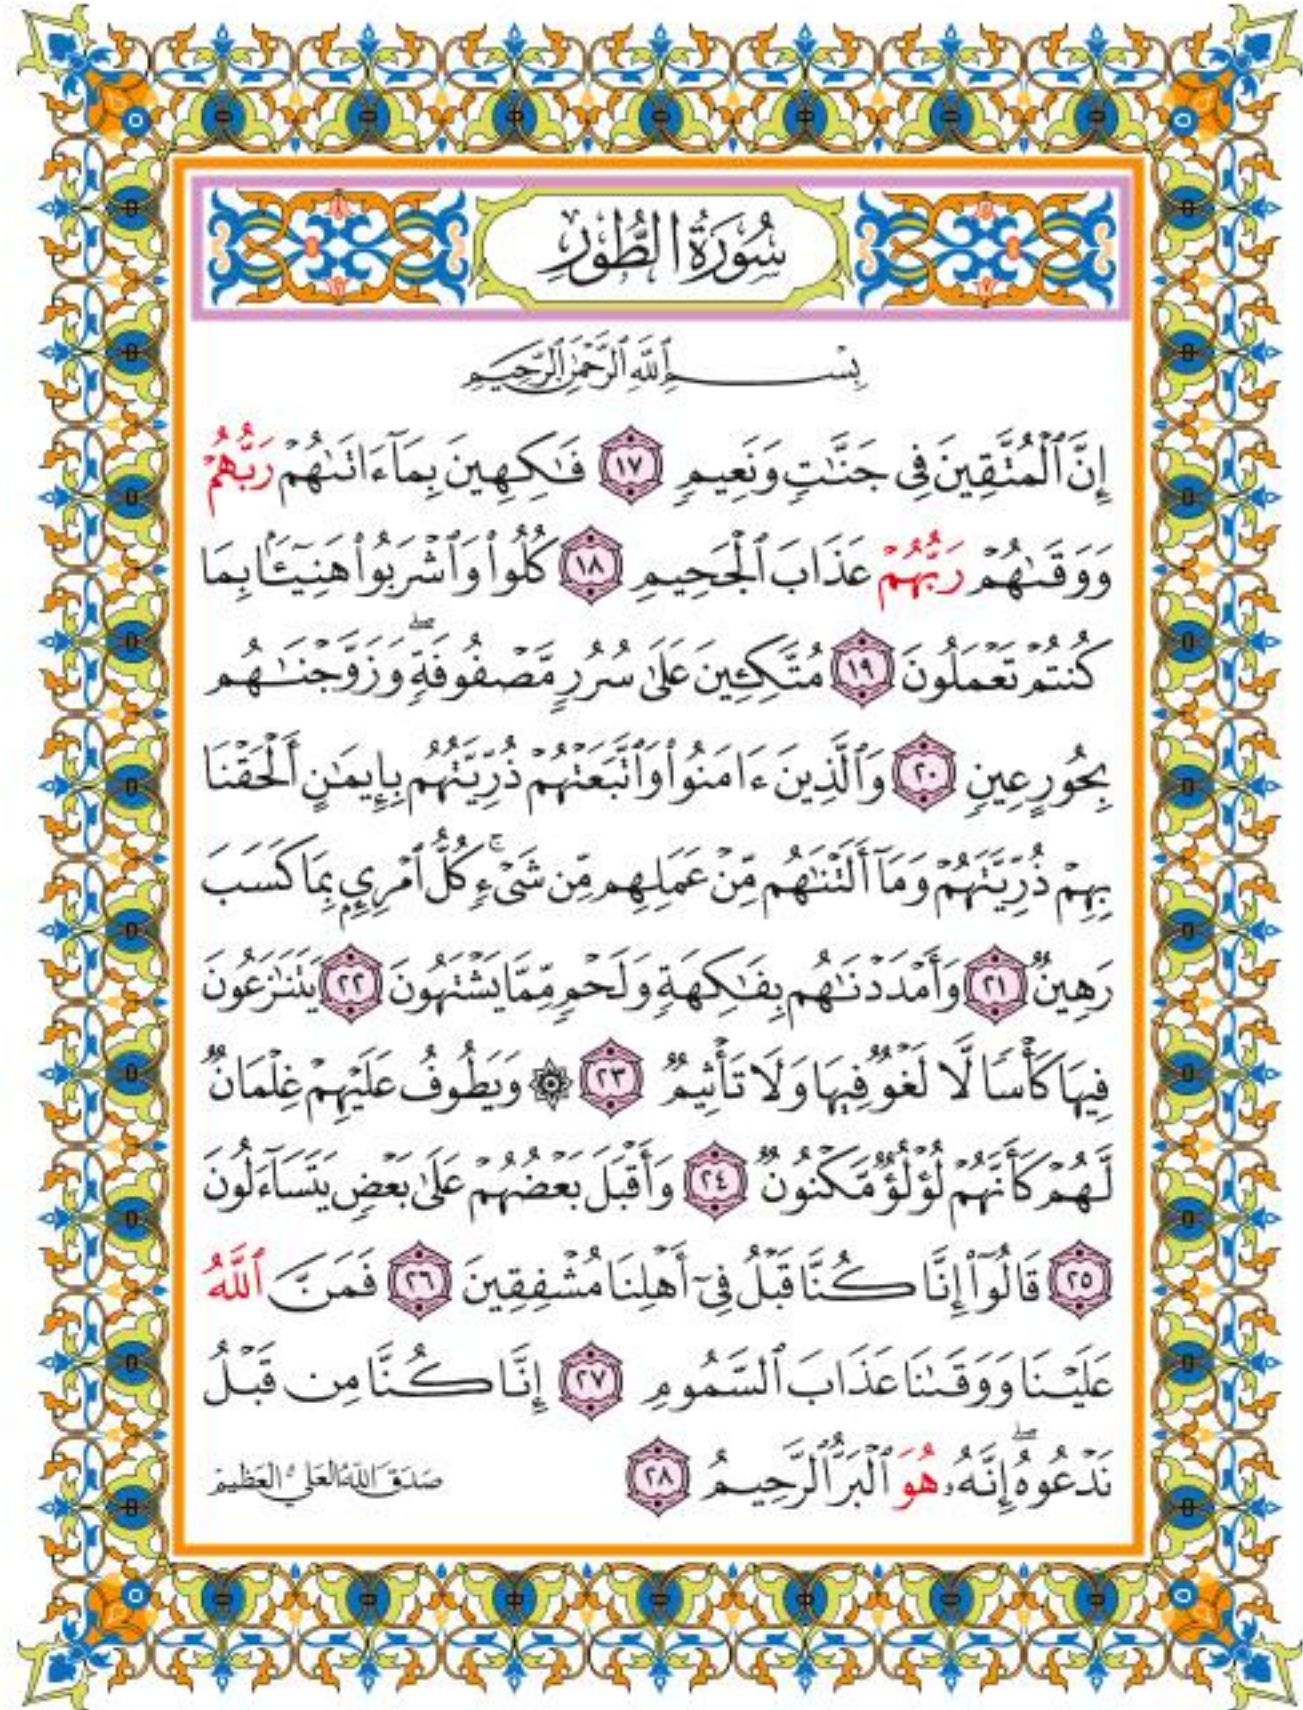 سُورَةُ الطُّورِ
بِسْمِ ٱللَّهِ ٱلرَّحْمَٰنِ ٱلرَّحِيمِ
إِنَّ ٱلْمُتَّقِينَ فِى جَنَّٰتٍ وَنَعِيمٍ ١٧ فَٰكِهِينَ بِمَآ ءَاتَىٰهُمْ رَبُّهُمْ
وَوَقَىٰهُمْ رَبُّهُمْ عَذَابَ ٱلْجَحِيمِ ١٨ كُلُوا۟ وَٱشْرَبُوا۟ هَنِيٓـًٔۢا بِمَا
كُنتُمْ تَعْمَلُونَ ١٩ مُتَّكِـِٔينَ عَلَىٰ سُرُرٍ مَّصْفُوفَةٍ ۖ وَزَوَّجْنَٰهُم
بِحُورٍ عِينٍ ٢٠ وَٱلَّذِينَ ءَامَنُوا۟ وَٱتَّبَعَتْهُمْ ذُرِّيَّتُهُم بِإِيمَٰنٍ أَلْحَقْنَا
بِهِمْ ذُرِّيَّتَهُمْ وَمَآ أَلَتْنَٰهُم مِّنْ عَمَلِهِم مِّن شَىْءٍ ۚ كُلُّ ٱمْرِئٍۭ بِمَا كَسَبَ
رَهِينٌ ٢١ وَأَمْدَدْنَٰهُم بِفَٰكِهَةٍ وَلَحْمٍ مِّمَّا يَشْتَهُونَ ٢٢ يَتَنَٰزَعُونَ
فِيهَا كَأْسًا لَّا لَغْوٌ فِيهَا وَلَا تَأْثِيمٌ ٢٣ ۞ وَيَطُوفُ عَلَيْهِمْ غِلْمَانٌ
لَّهُمْ كَأَنَّهُمْ لُؤْلُؤٌ مَّكْنُونٌ ٢٤ وَأَقْبَلَ بَعْضُهُمْ عَلَىٰ بَعْضٍ يَتَسَآءَلُونَ
٢٥ قَالُوٓا۟ إِنَّا كُنَّا قَبْلُ فِىٓ أَهْلِنَا مُشْفِقِينَ ٢٦ فَمَنَّ ٱللَّهُ
عَلَيْنَا وَوَقَىٰنَا عَذَابَ ٱلسَّمُومِ ٢٧ إِنَّا كُنَّا مِن قَبْلُ
نَدْعُوهُ ۖ إِنَّهُۥ هُوَ ٱلْبَرُّ ٱلرَّحِيمُ ٢٨ صَدَقَ اللهُ العَلِيُّ العَظِيمُ